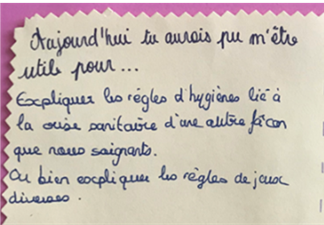 Aujourd'hui tu aurais pu m'être
utile pour...
Expliquer les règles d'hygiènes lié à
la crise sanitaire d'une autre façon
que nous soignants.
Ou bien expliquer les règles de jeux
diverses.